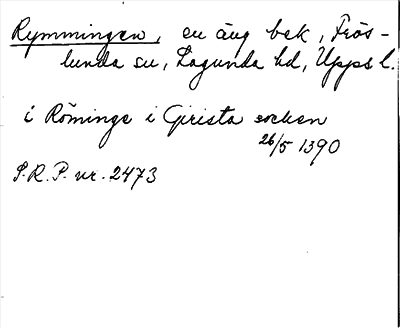 Rymmingen, en äng bek, Frös-
lunda sn, Lagunda hd, Upps l.
i Röminge i Girista socken
26/5 1390
S.R.P. nr. 2473